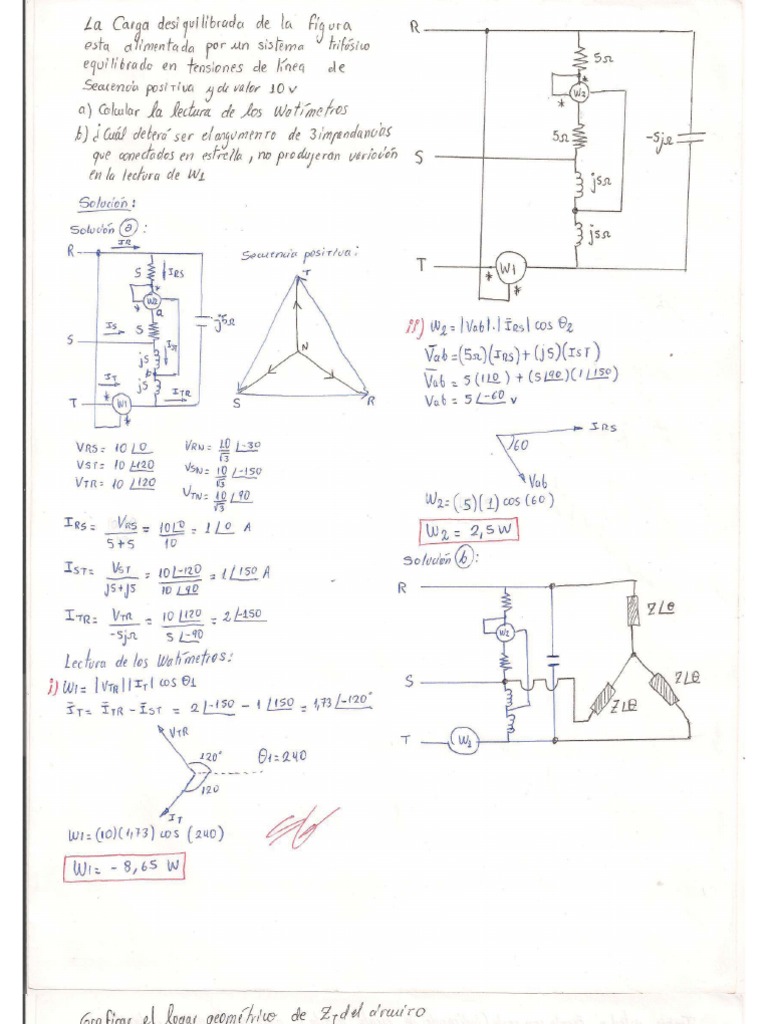 La Carga desiquilibrada de la figura
esta alimentada por un sistema trifásico
equilibrado en tensiones de línea de
Secuencia positiva y de valor 10 v
a) Calcular la lectura de los Watímetros
b) ¿Cuál deberá ser el argumento de 3 impendancias
que conectados en estrella, no produjeran variación
en la lectura de W1
R
5Ω
W2
*
*
5Ω
-5jΩ
S
j5Ω
j5Ω
T
W1
*
*
Solución:
Solución a:
R
IR
5
IRS
W2
a
5
IS
S
j5
IST
b
j5
IT
ITR
T
W1
-j5Ω
Secuencia positiva:
T
N
S
R
VRS = 10∠0
VST = 10∠120
VTR = 10∠120
VRN = 10/√3 ∠-30
VSN = 10/√3 ∠-150
VTN = 10/√3 ∠90
IRS = VRS/5+5 = 10∠0/10 = 1∠0 A
IST = VST/j5+j5 = 10∠-120/10∠90 = 1∠150 A
ITR = VTR/-5jΩ = 10∠120/5∠-90 = 2∠-150
Lectura de los Watímetros:
i) W1 = |VTR||IT| cos θ1
ĪT = ĪTR - ĪST = 2∠-150 - 1∠150 = 1,73∠-120°
VTR
120°
120
θ1 = 240
IT
W1 = (10)(1,73) cos (240)
W1 = - 8,65 W
ii) W2 = |Vab|.|ĪRS| cos θ2
V̄ab = (5Ω)(IRS) + (j5)(IST)
V̄ab = 5(1∠0) + (5∠90)(1∠150)
Vab = 5∠-60 v
IRS
60
Vab
W2 = (5)(1) cos (60)
W2 = 2,5 W
Solución b:
R
W2
Z∠θ
S
Z∠θ
Z∠θ
T
W1
Graficar el lugar geométrico de ZT del circuito